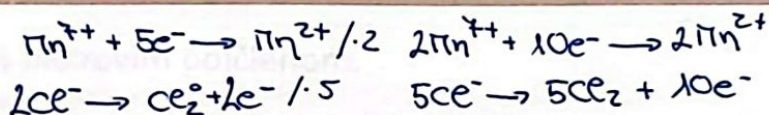 Mn⁷⁺ + 5e⁻ → Mn²⁺ /·2 2Mn⁷⁺ + 10e⁻ → 2Mn²⁺
2Cl⁻ → Cl₂⁰ + 2e⁻ /·5 5Cl⁻ → 5Cl₂ + 10e⁻